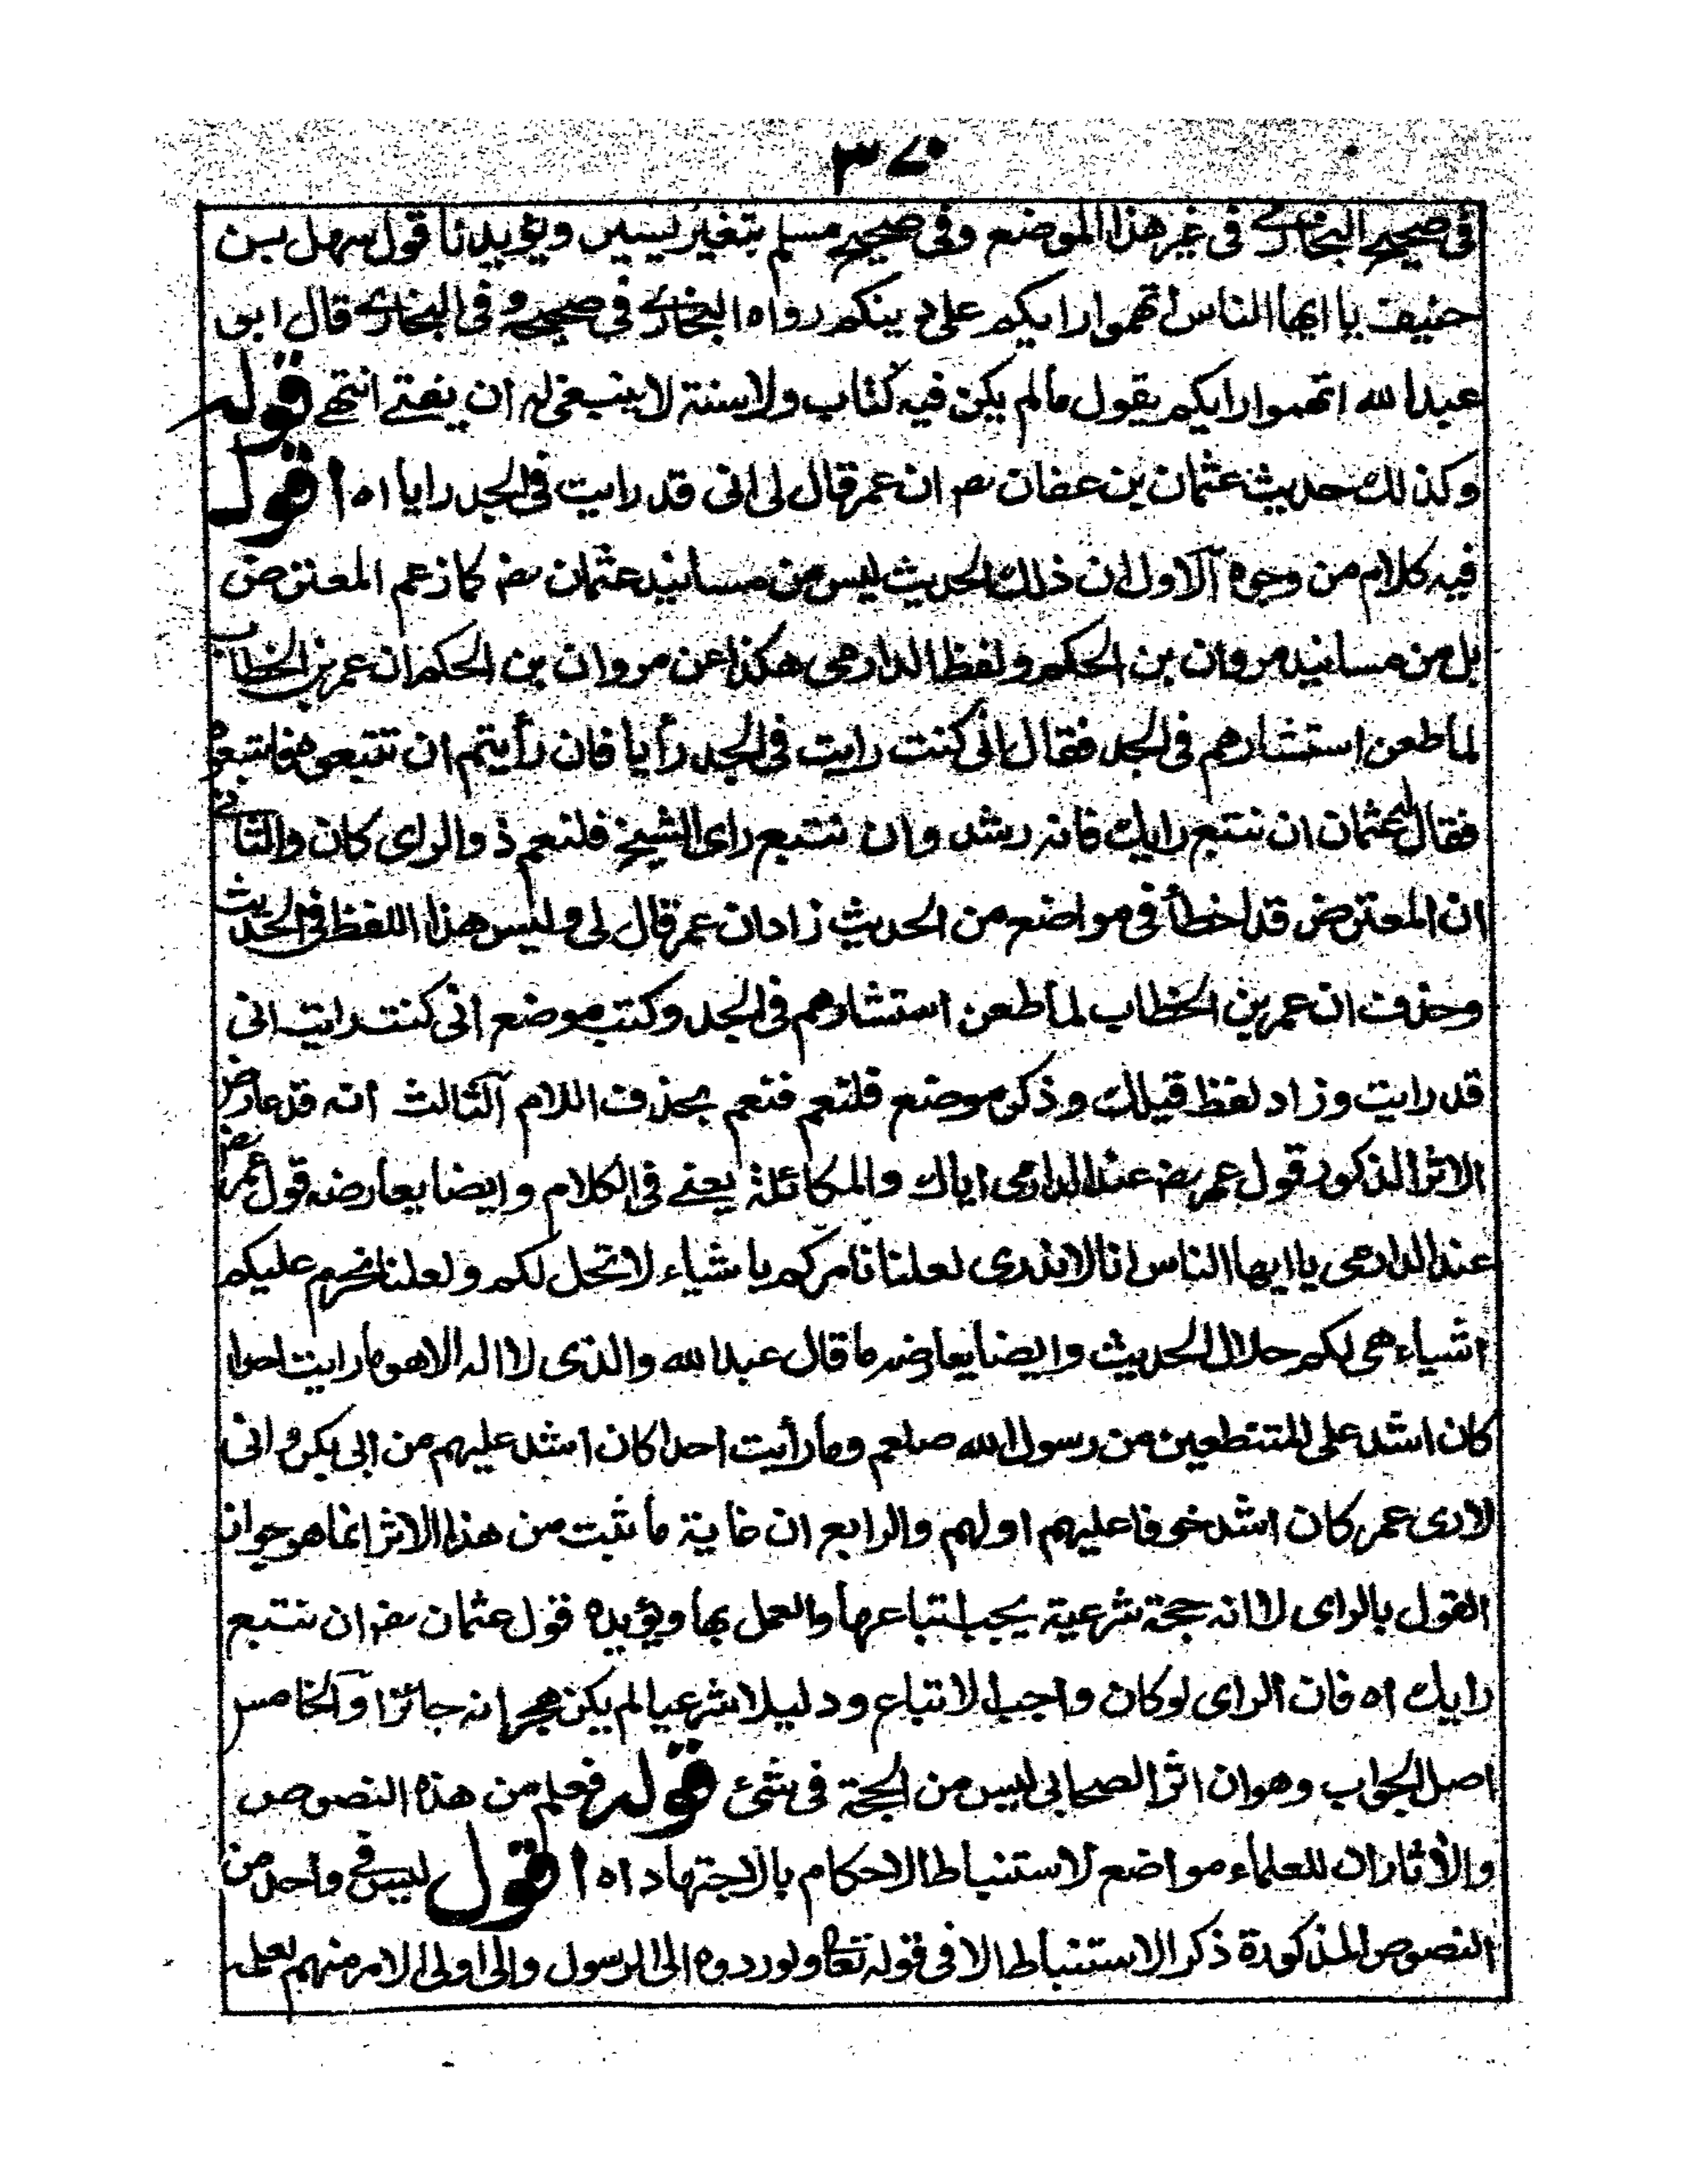 ٣٧٠
فى صحيح البخارى فى غير هذا الموضع وفى صحيح مسلم بتغير يسير ويؤيدنا قول سهل بن
حنيف يا ايها الناس اتهموا رايكم على دينكم رواه البخارى فى صحيحه وفى البخارى قال ابو
عبدالله اتهموا رايكم يقول مالم يكن فيه كتاب ولا سنة لا ينبغى له ان يفتے انتهے قوله
وكذلك حديث عثمان بن عفان رضـ ان عمر قال لى انى قد رايت فى الجد رايا اه اقول
فيه كلام من وجوه الاول ان ذلك الحديث ليس من مسانيد عثمان رضـ كما زعم المعترض
بل من مسانيد مروان بن الحكم ولفظ الدارمى هكذا عن مروان بن الحكم ان عمر بن الخطاب
لما طعن استشارهم فى الجد فقال انى كنت رايت فى الجد رأيا فان رأيتم ان تتبعوه فاتبعوه
فقال له عثمان ان نتبع رايك فانه رشد وان نتبع راى الشيخ فلنعم ذو الراى كان والثانى
ان المعترض قد اخطأ فى مواضع من الحديث زاد ان عمر قال لى وليس هذا اللفظ فى الحديث
وحذف ان عمر بن الخطاب لما طعن استشارهم فى الجد وكتب موضع انى كنت رايت انى
قد رايت وزاد لفظ قبلك وذكر موضع فلنعم فنعم بحذف اللام الثالث انه قد عارض
الاثر المذكور قول عمر رضـ عند الدارمى اياك والمكائلة يعنے فى الكلام وايضا يعارضه قول عمر رضـ
عند الدارمى يا ايها الناس انا لا ندرى لعلنا نامركم با شياء لا تحل لكم ولعلنا نحرم عليكم
اشياء هى لكم حلال الحديث وايضا يعارضه ما قال عبدالله والذى لا اله الا هو ما رايت احدا
كان اشد على المتنطعين من رسول الله صلعم وما رأيت احدا كان اشد عليهم من ابى بكر وانى
لارى عمر كان اشد خوفا عليهم اولهم والرابع ان غاية ما ثبت من هذا الاثر انما هو جواز
القول بالراى لا انه حجة شرعية يجب اتباعها والعمل بها ويؤيده قول عثمان رضـ ان نتبع
رايك اه فان الراى لو كان واجب الاتباع ودليلا شرعيا لم يكن هجرانه جائزا والخامس
اصل الجواب وهو ان اثر الصحابى ليس من الحجة فى شئ قوله فعلم من هذه النصوص
والأثار ان للعلماء مواضع لاستنباط الاحكام بالاجتهاد اه اقول ليس فى واحد من
النصوص المذكورة ذكر الاستنباط الا فى قوله تعالى ولو ردوه الى الرسول والى اولى الامر منهم لعلمه